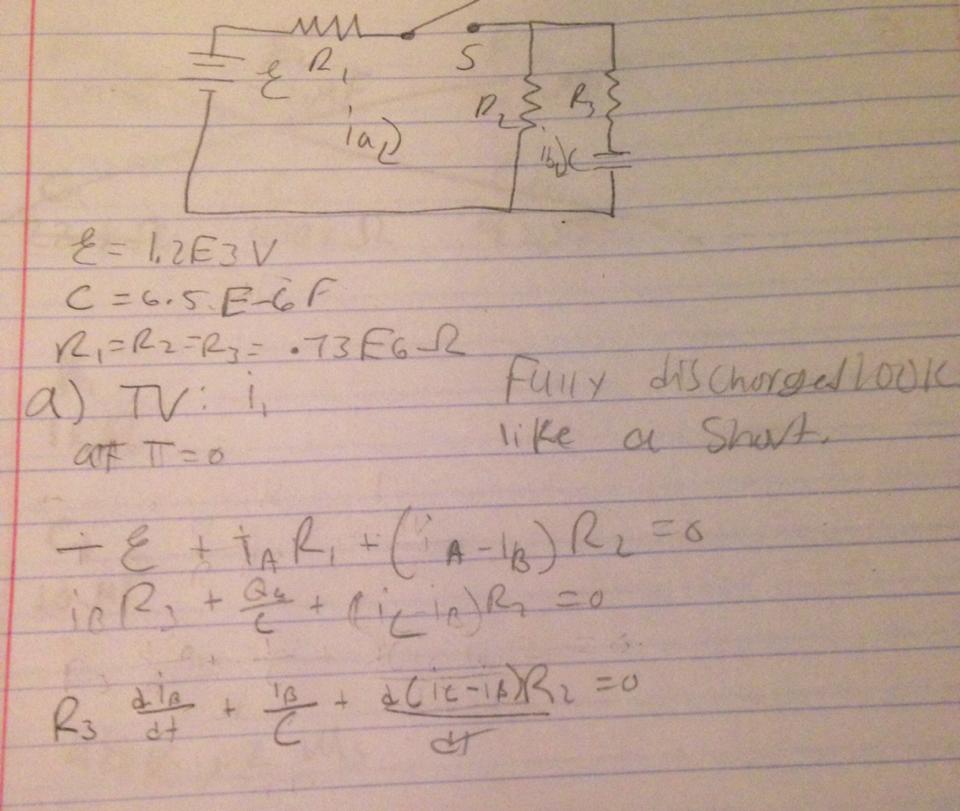 R₁ S
ε
R₂ R₃
iₐ
i_b C
ε = 1.2E3 V
C = 6.5 E-6 F
R₁=R₂=R₃= .73E6 Ω
a) TV: i₁
Fully discharged look
like a short.
at T=0
÷ ε + i_A R₁ + (i_A - i_B) R₂ = 0
i_B R₃ + Q/C + (i_C - i_B) R₂ = 0
R₃ di_B/dt + i_B/C + d(i_C - i_B)R₂/dt = 0